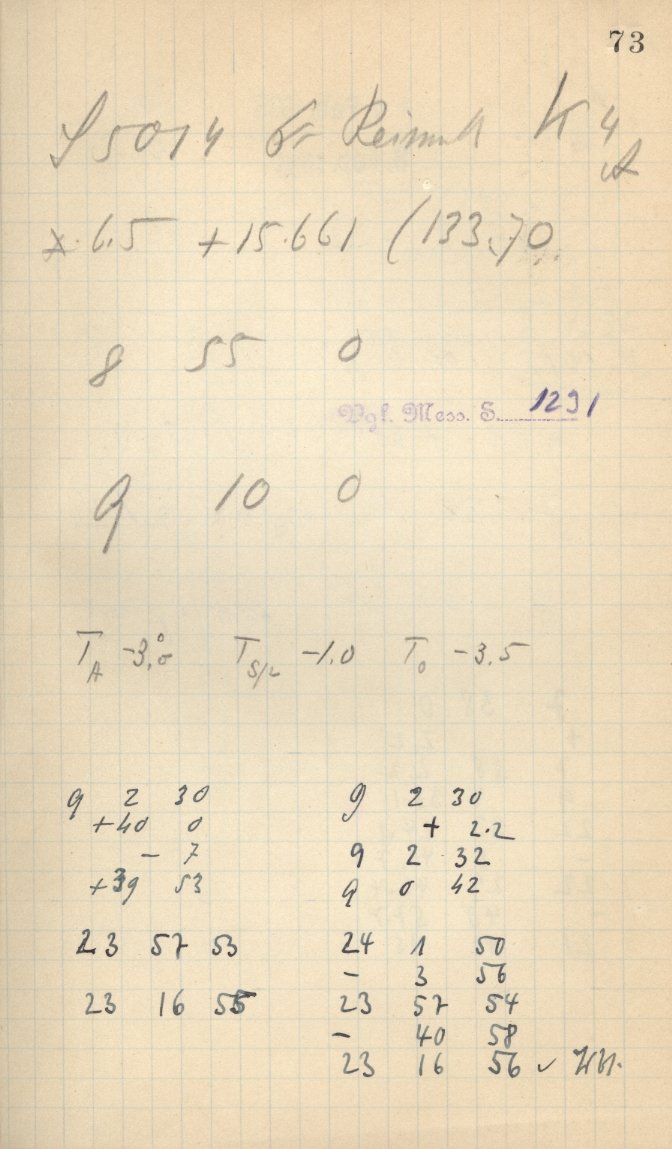 73
S 5014 Gr Reinmuth K 4
A
x. 6.5 +15.661 (133.70
8 55 0
Vgl. Mess. S. 1291
9 10 0
T_A -3.0° T_S/L -1.0 T_0 -3.5
9 2 30
+40 0
- 7
+39 53
23 57 53
23 16 55
9 2 30
+ 2.2
9 2 32
9 0 42
24 1 50
- 3 56
23 57 54
- 40 58
23 16 56 ✓